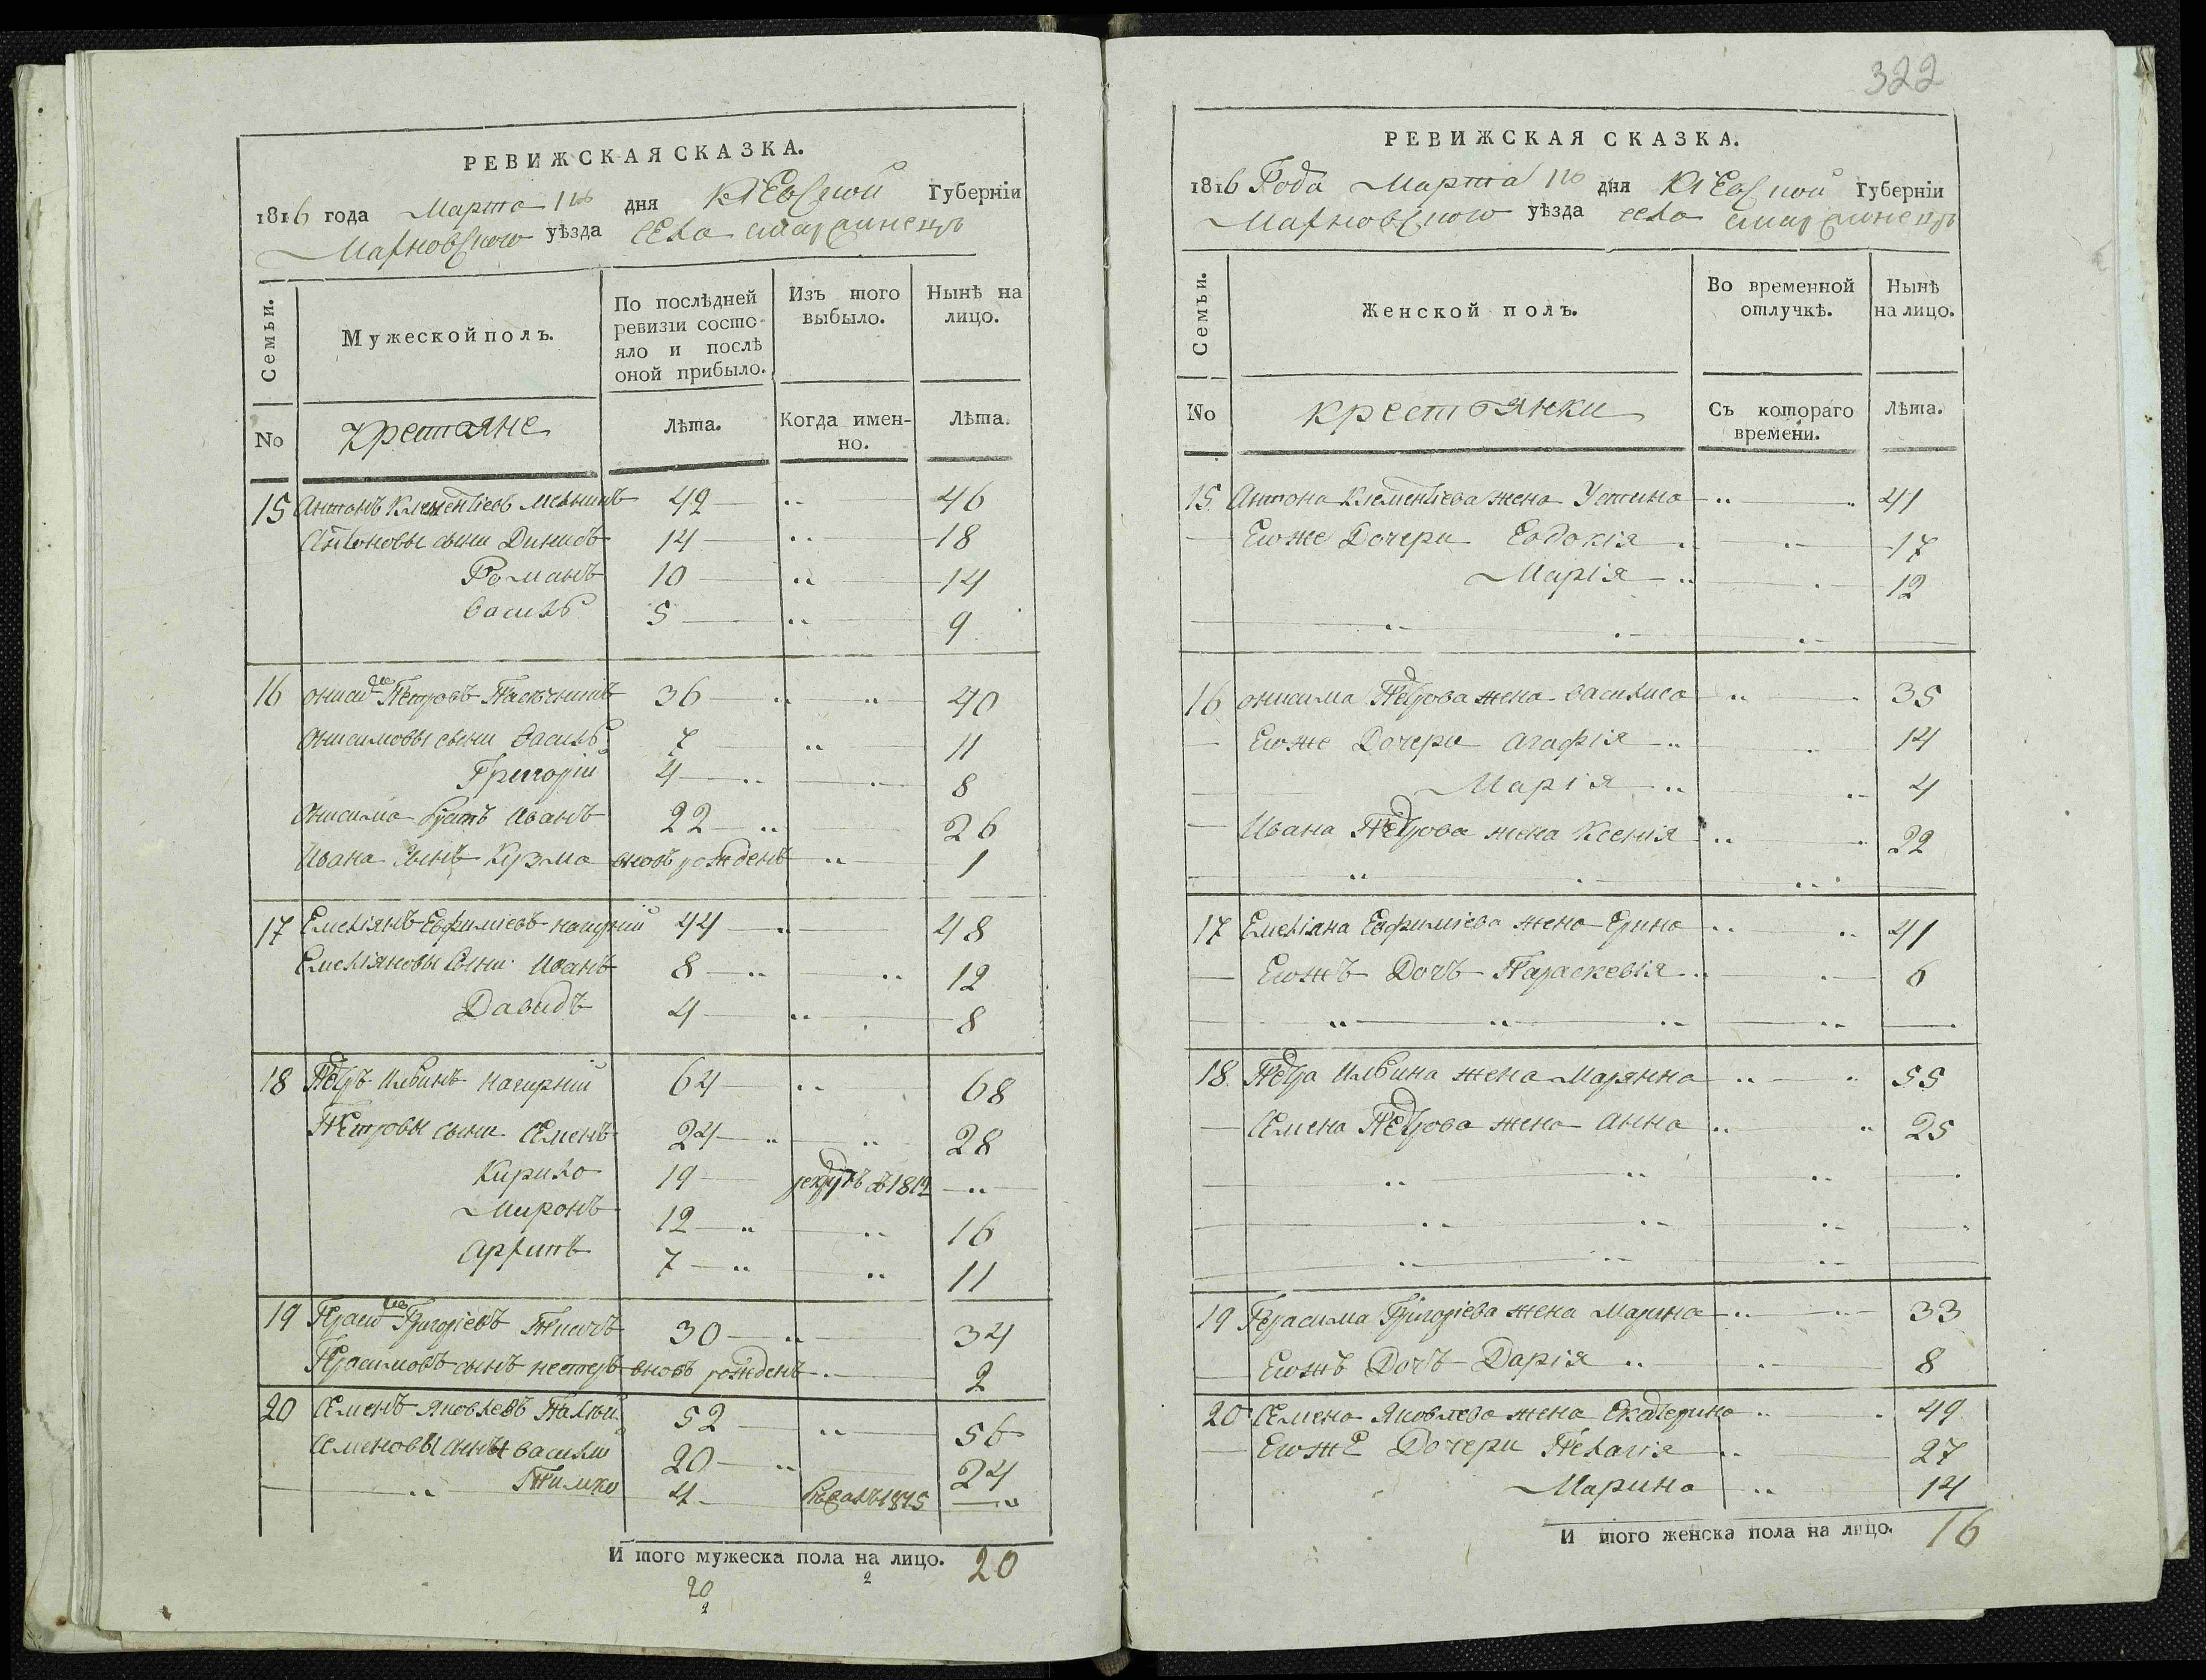 РЕВИЖСКАЯ СКАЗКА.
1816 года Марта 1го дня Кіевской Губерніи
Махновского уѣзда села
Семьи.
Мужеской полъ.
По послѣдней ревизіи состо-
яло и послѣ
оной прибыло.
Изъ того
выбыло.
Нынѣ на
лицо.
No
крестяне
Лѣта.
Когда имен-
но.
Лѣта.
15 Антонъ Клементіевъ 42 46
Антоновы сыни 14 18
Романъ 10 14
Василь 5 9
16 Онисимъ Петровъ 36 40
Онисимовы сыни Василь 7 11
Григорій 4 8
Онисима братъ Иванъ 22 26
Ивана сынъ Кузма вновь рожденъ 1
17 Емеліянъ Евфиміевъ нагирній 44 48
Емеліяновы сыни Иванъ 8 12
Давидъ 4 8
18 Петръ Ильинъ нагирній 64 68
Петровы сыни Семенъ 24 28
Кирило 19 рекрутъ въ 1812
Миронъ 12 16
Архипъ 7 11
19 Герасимъ Григоріевъ 30 34
Герасимовъ сынъ нестеръ вновь рожденъ 2
20 Семенъ Яковлевъ 52 56
Семеновы сыны Василь 20 24
Тимко 4 1815
И того мужеска пола на лицо. 20
20
2
2
322
РЕВИЖСКАЯ СКАЗКА.
1816 Года Марта 1го дня Кіевской Губерніи
Махновского уѣзда села
Семьи.
Женской полъ.
Во временной
отлучкѣ.
Нынѣ
на лицо.
No
крестьянки
Съ котораго
времени.
Лѣта.
15 Антона Клементіева жена Устина 41
Егоже Дочери Евдокія 17
Марія 12
16 Онисима Петрова жена Василиса 35
Егоже Дочери Агафія 14
Марія 4
Ивана Петрова жена Ксенія 22
17 Емеліяна Евфиміева жена Ерина 41
Егожъ Дочъ Параскевія 6
18 Петра Ильина жена Маріянна 55
Семена Петрова жена Анна 25
19 Герасима Григоріева жена Марина 33
Егожъ Дочъ Дарія 8
20 Семена Яковлева жена Екатерина 49
Егоже Дочери Пелагія 27
Марина 14
И того женска пола на лицо. 16